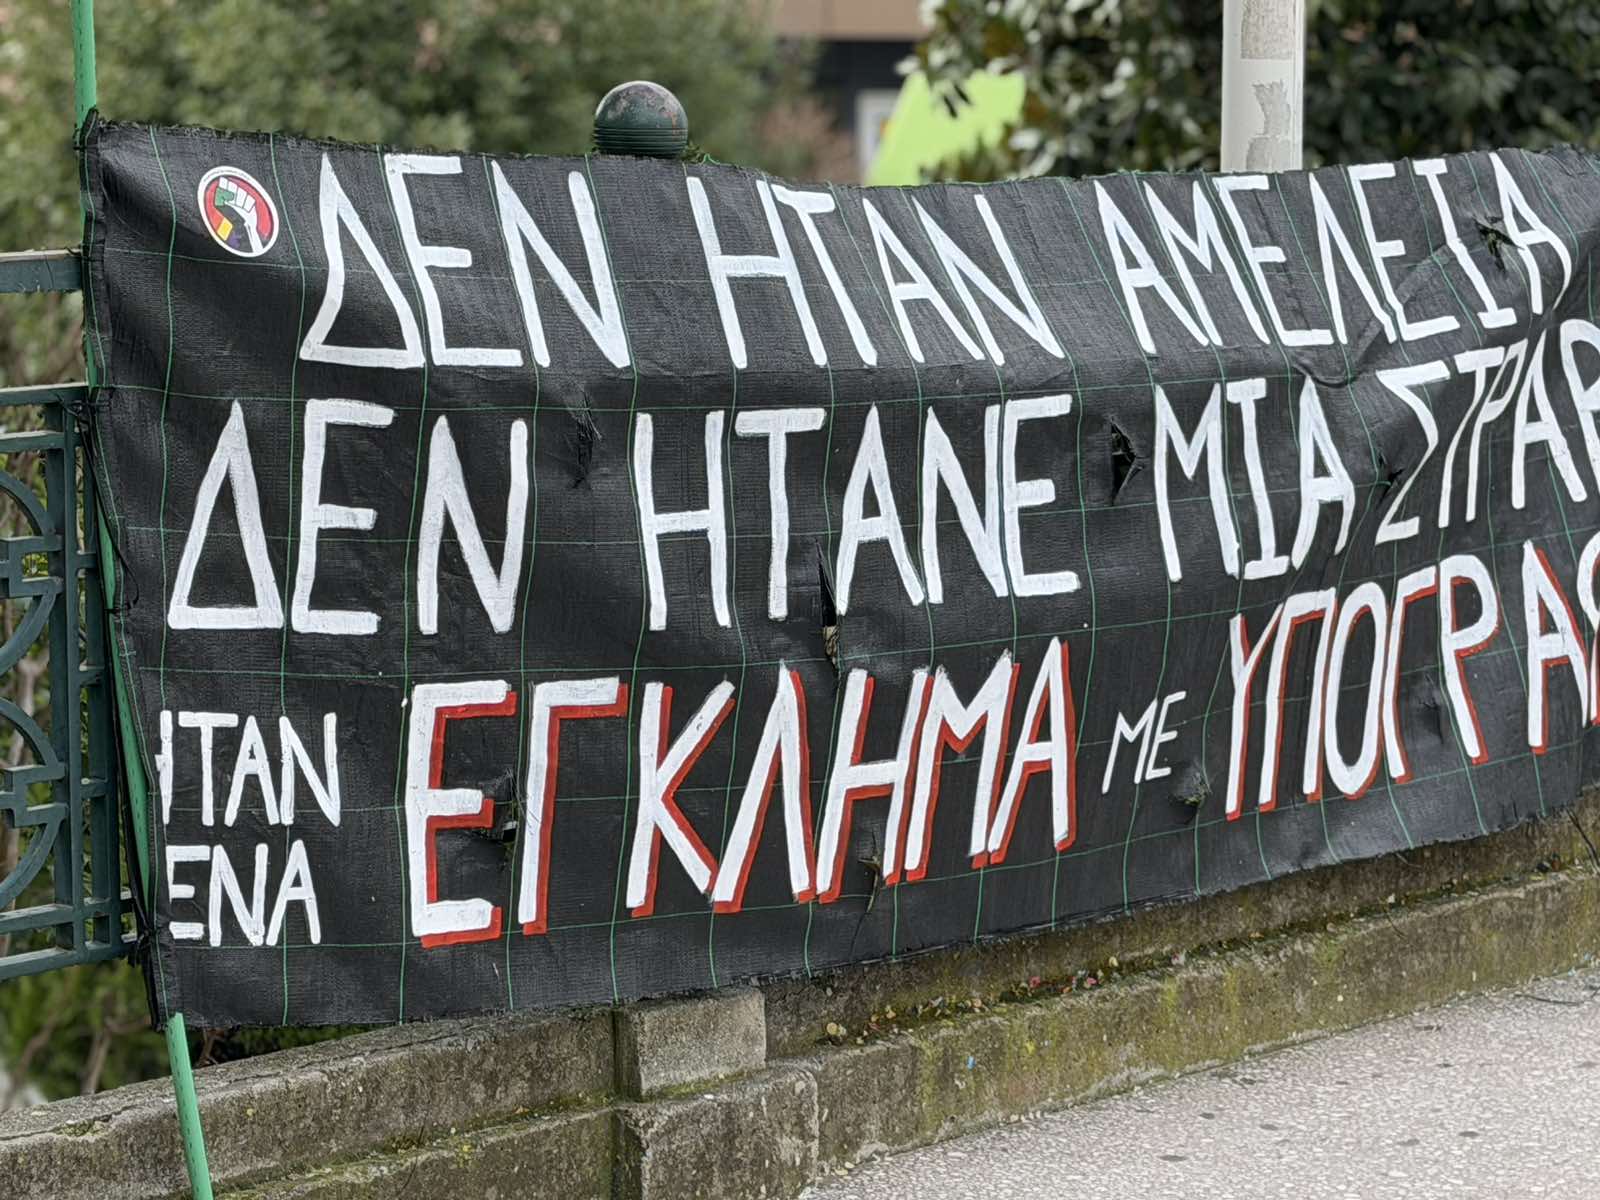 ΔΕΝ ΗΤΑΝ ΑΜΕΛΕΙΑ
ΔΕΝ ΗΤΑΝΕ ΜΙΑ
ΗΤΑΝ ΕΝΑ ΕΓΚΛΗΜΑ ΜΕ